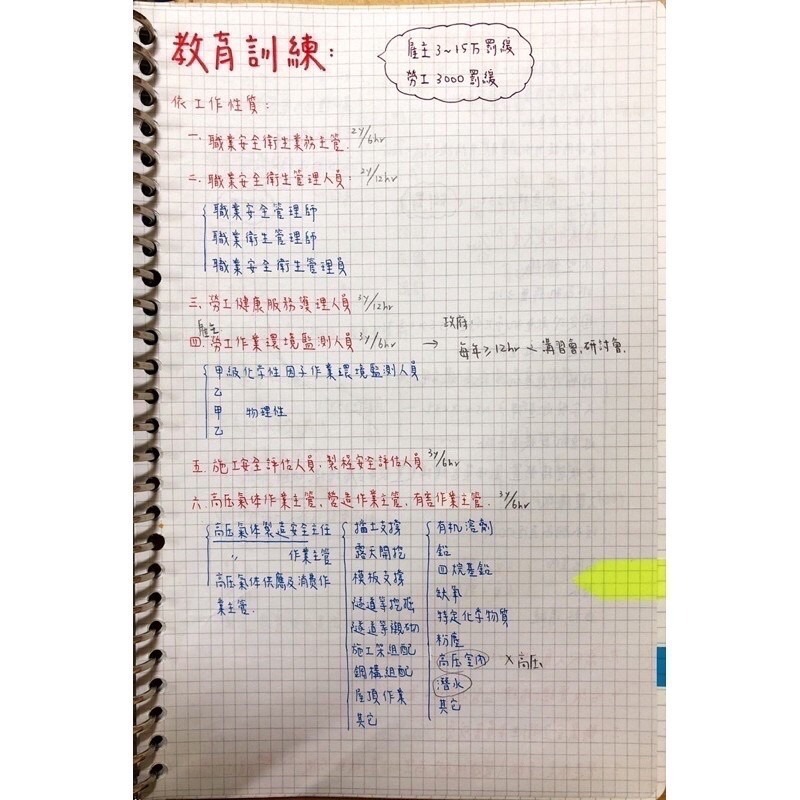 教育訓練:
雇主3~15万罰緩
勞工3000罰緩
依工作性質:
一.職業安全衛生業務主管. 2y/6hr
二.職業安全衛生管理人員: 2y/12hr
職業安全管理師
職業衛生管理師
職業安全衛生管理員
三.勞工健康服務護理人員 3y/12hr
雇主
四.勞工作業環境監測人員 3y/6hr →
政府:
每年≥12hr < 講習會.研討會.
甲級化学性因子作業環境監測人員
乙
甲 物理性
乙
五.施工安全評估人員.製程安全評估人員 3y/6hr
六.高压氣体作業主管.營造作業主管.有害作業主管. 3y/6hr
高压氣体製造安全主任
〃 作業主管
高压氣体供應及消費作
業主管.
擋土支撐
露天開挖
模板支撐
隧道等挖掘
隧道等襯砌
施工架組配
鋼構組配
屋頂作業
其它
有机溶劑
鉛
四烷基鉛
缺氧
特定化学物質
粉塵
高压室內 ×高压
潛水
其它